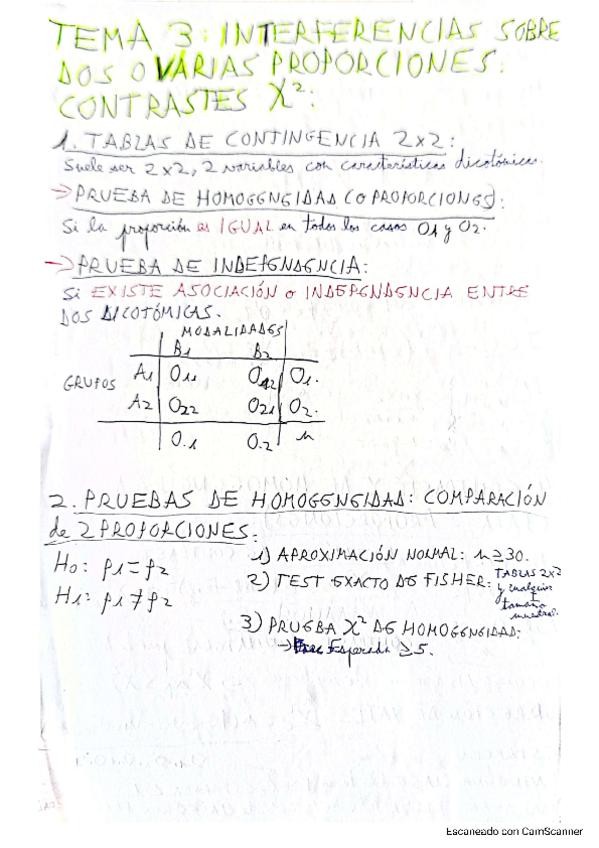 TEMA 3: INTERFERENCIAS SOBRE
DOS O VARIAS PROPORCIONES:
CONTRASTES X²:
1. TABLAS DE CONTINGENCIA 2x2:
Suele ser 2x2, 2 variables con características dicotómicas.
→ PRUEBA DE HOMOGENEIDAD (O PROPORCIONES):
Si la proporción es IGUAL en todos los casos O1 y O2.
→ PRUEBA DE INDEPENDENCIA:
Si EXISTE ASOCIACIÓN o INDEPENDENCIA ENTRE
DOS DICOTÓMICAS.
MODALIDADES
B1 B2
GRUPOS A1 O11 O12 O1.
A2 O22 O21 O2.
O.1 O.2 n
2. PRUEBAS DE HOMOGENEIDAD: COMPARACIÓN
de 2 PROPORCIONES:
H0: p1 = p2
H1: p1 ≠ p2
1) APROXIMACIÓN NORMAL: n ≥ 30.
2) TEST EXACTO DE FISHER: TABLAS 2x2
y cualquier
tamaño
muestral.
3) PRUEBA X² DE HOMOGENEIDAD:
→ Esperada ≥ 5.
Escaneado con CamScanner